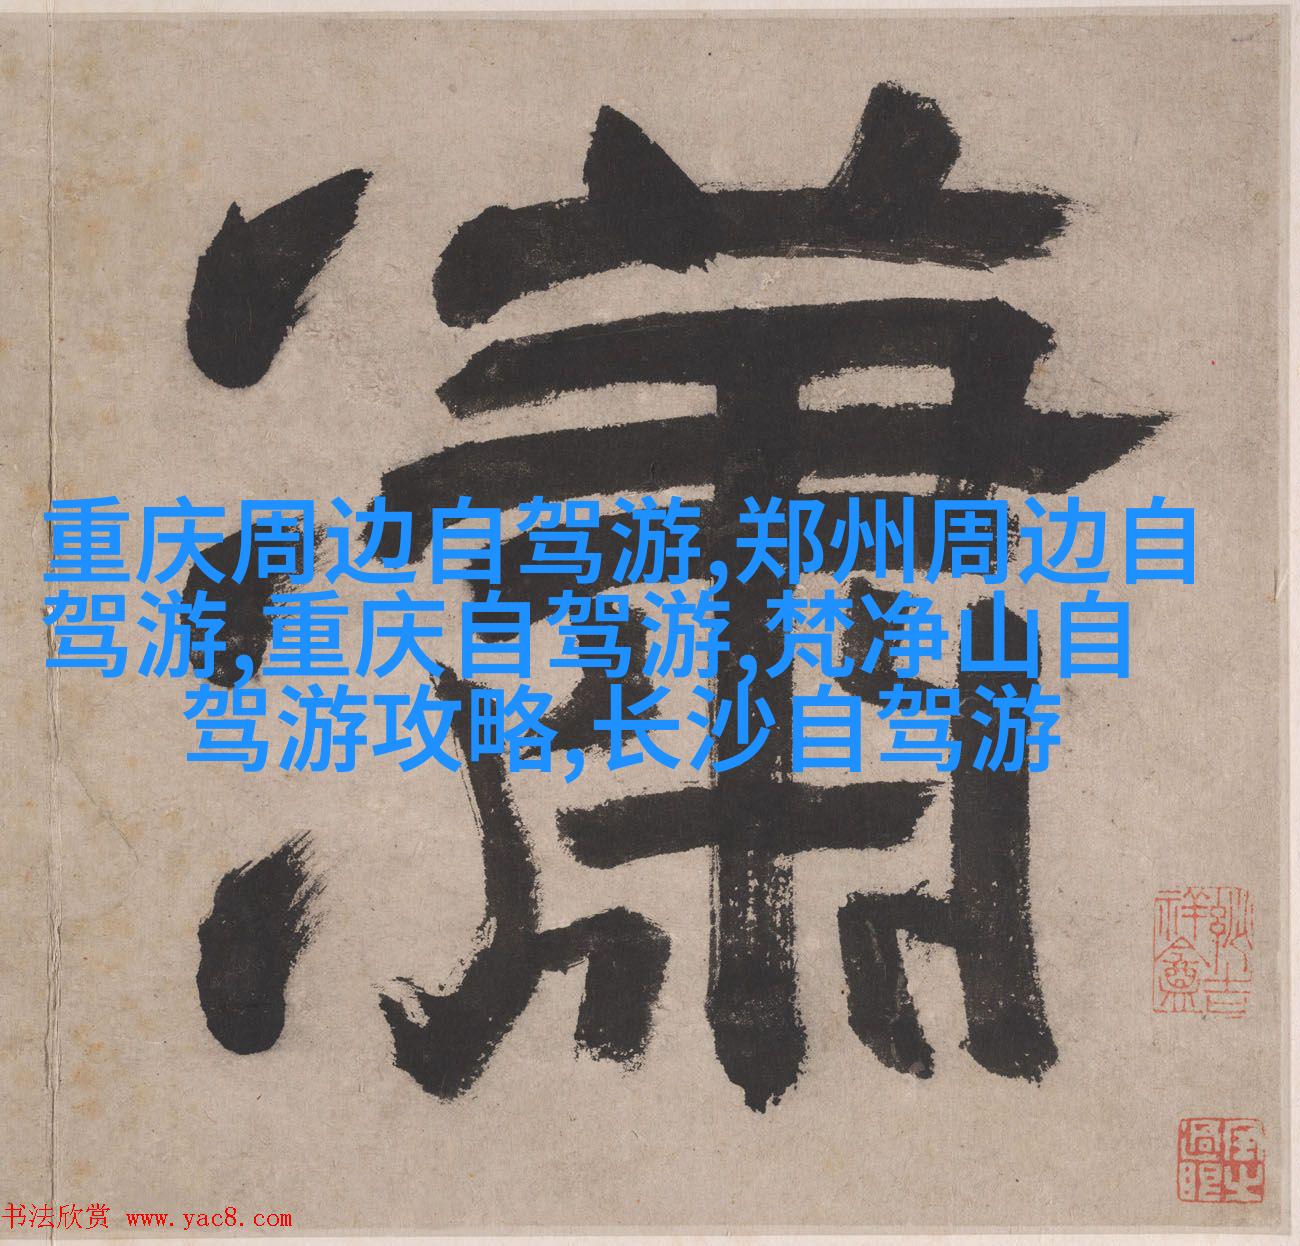 瀟
重庆周边自驾游,郑州周边自
驾游,重庆自驾游,梵净山自
驾游攻略,长沙自驾游
书法欣赏 www.yac8.com